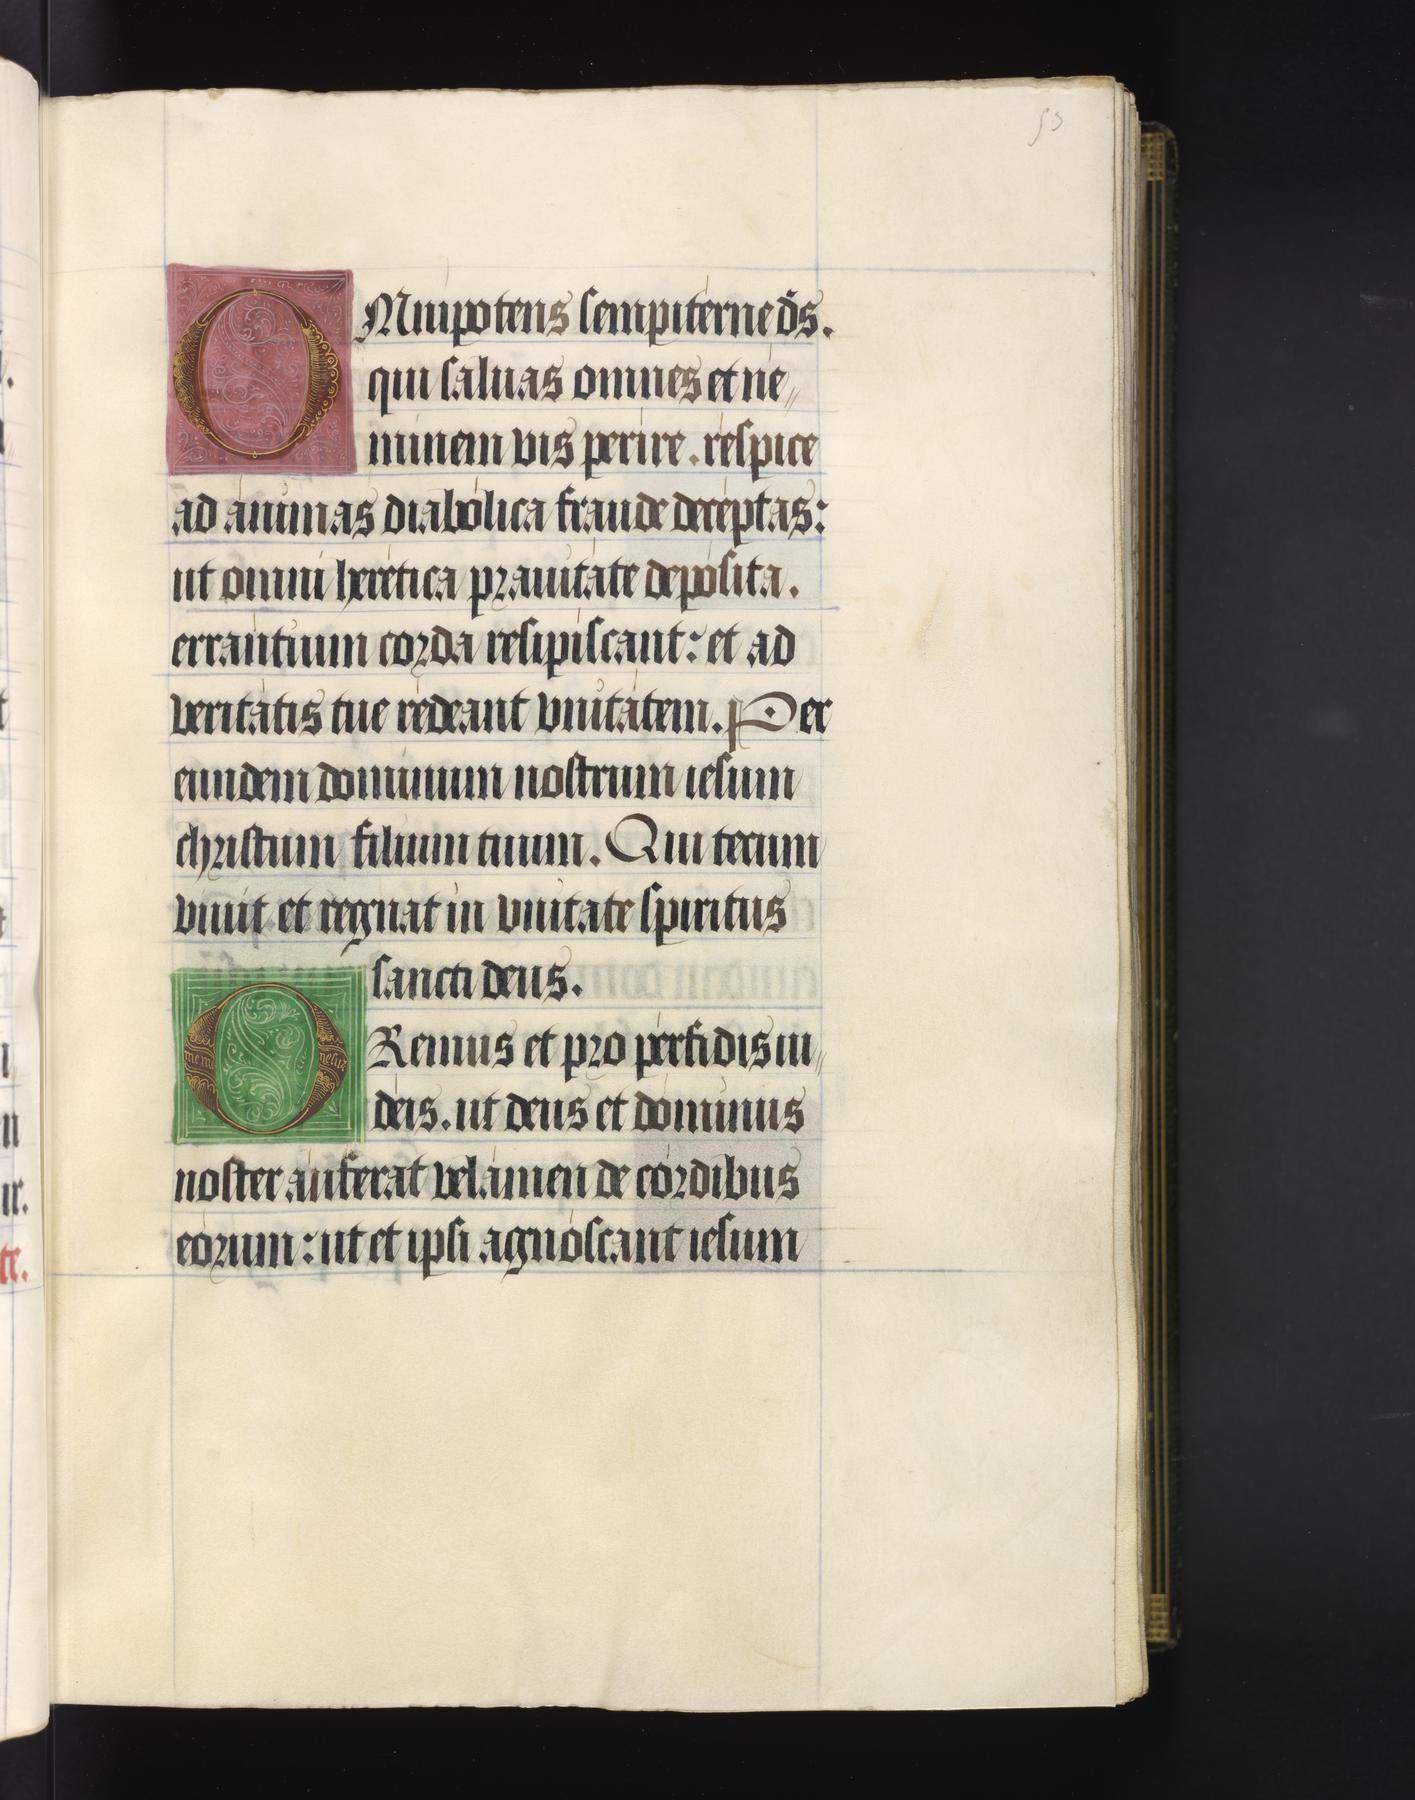 53
OMnipotens sempiterne ds̄.
qui saluas omnes et ne//
minem vis perire. respice
ad animas diabolica fraude deceptas:
ut omni heretica prauitate deposita.
errantium corda resipiscant: et ad
veritatis tue redeant vnitatem. Per
eundem dominum nostrum iesum
christum filium tuum. Qui tecum
viuit et regnat in vnitate spiritus
sancti deus.
ORemus et pro perfidis iu//
deis. ut deus et dominus
noster auferat velamen de cordibus
eorum: ut et ipsi agnoscant iesum